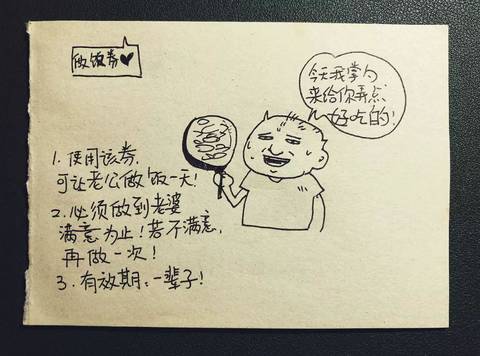 做饭券♥
今天我掌勺
来给你弄点
好吃的!
1. 使用该券,
可让老公做饭一天!
2. 必须做到老婆
满意为止!若不满意,
再做一次!
3. 有效期:一辈子!